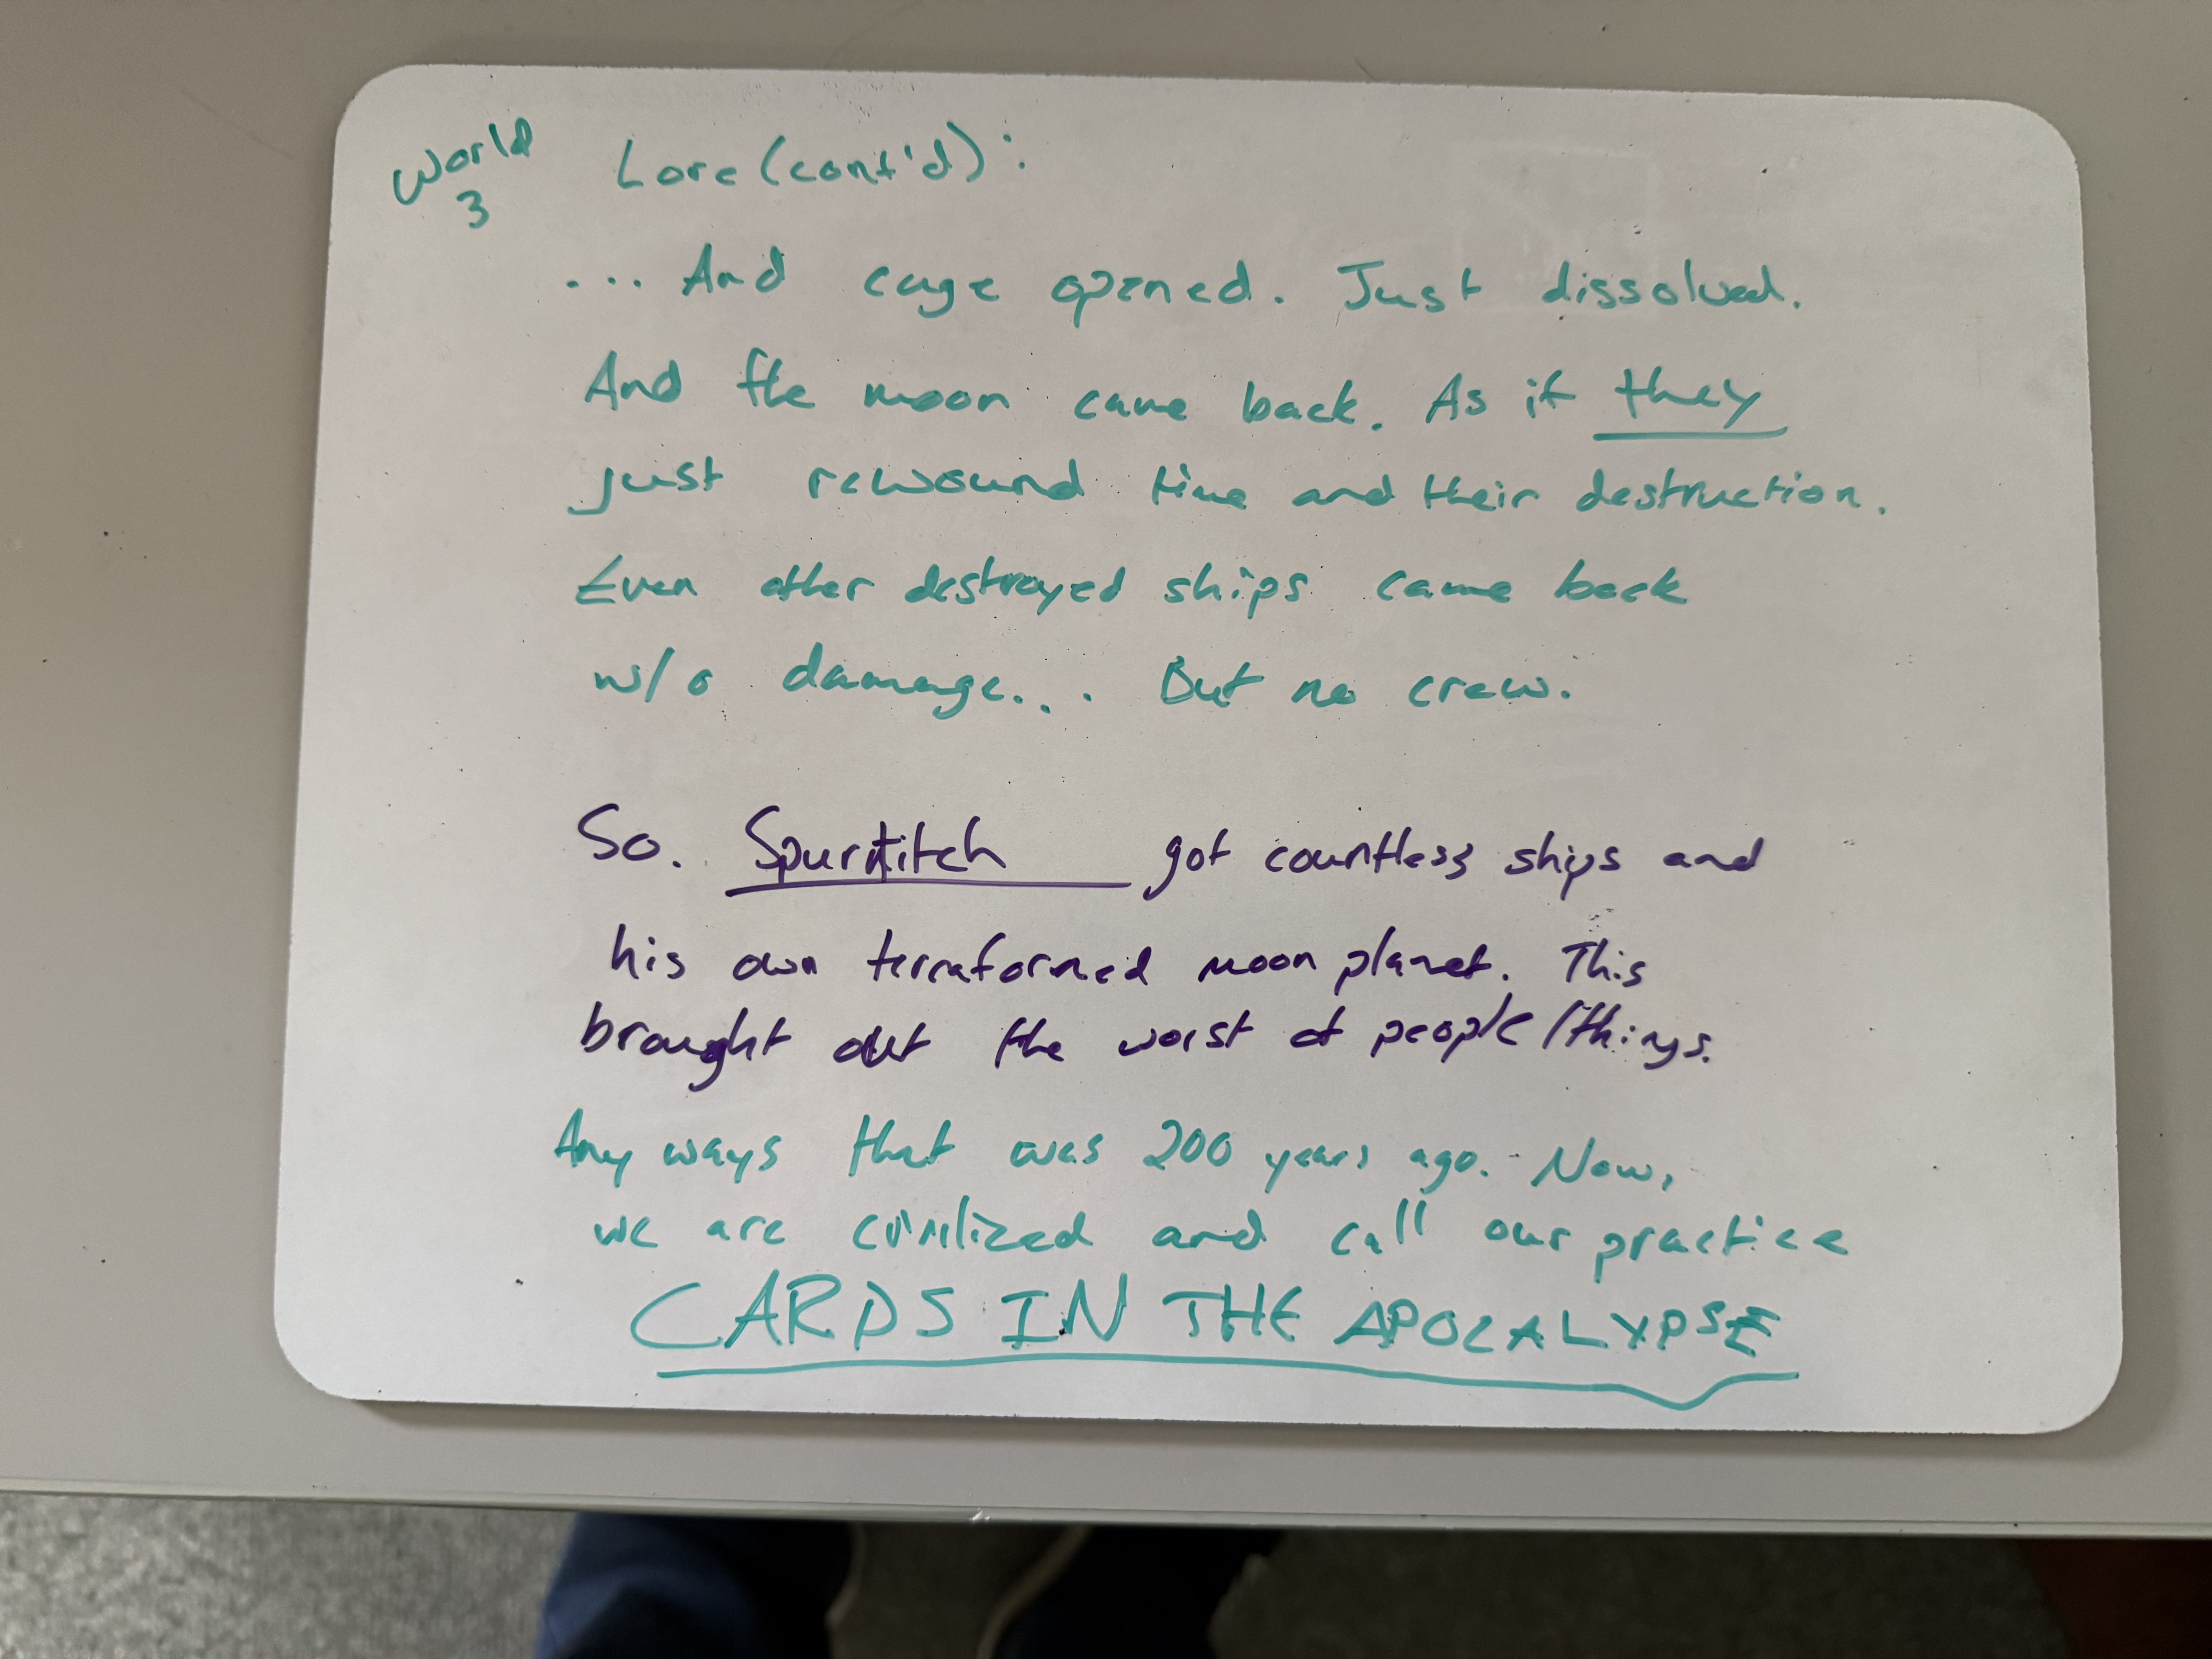 World
3
Lore (cont'd):
... And cage opened. Just dissolved.
And the moon came back. As if they
just rewound time and their destruction.
Even other destroyed ships came back
w/o damage... But no crew.
So. got countless ships and
his own terraformed moon planet. This
brought out the worst of people/things.
Any ways that was 200 years ago. Now,
we are civilized and call our practice
CARDS IN THE APOCALYPSE